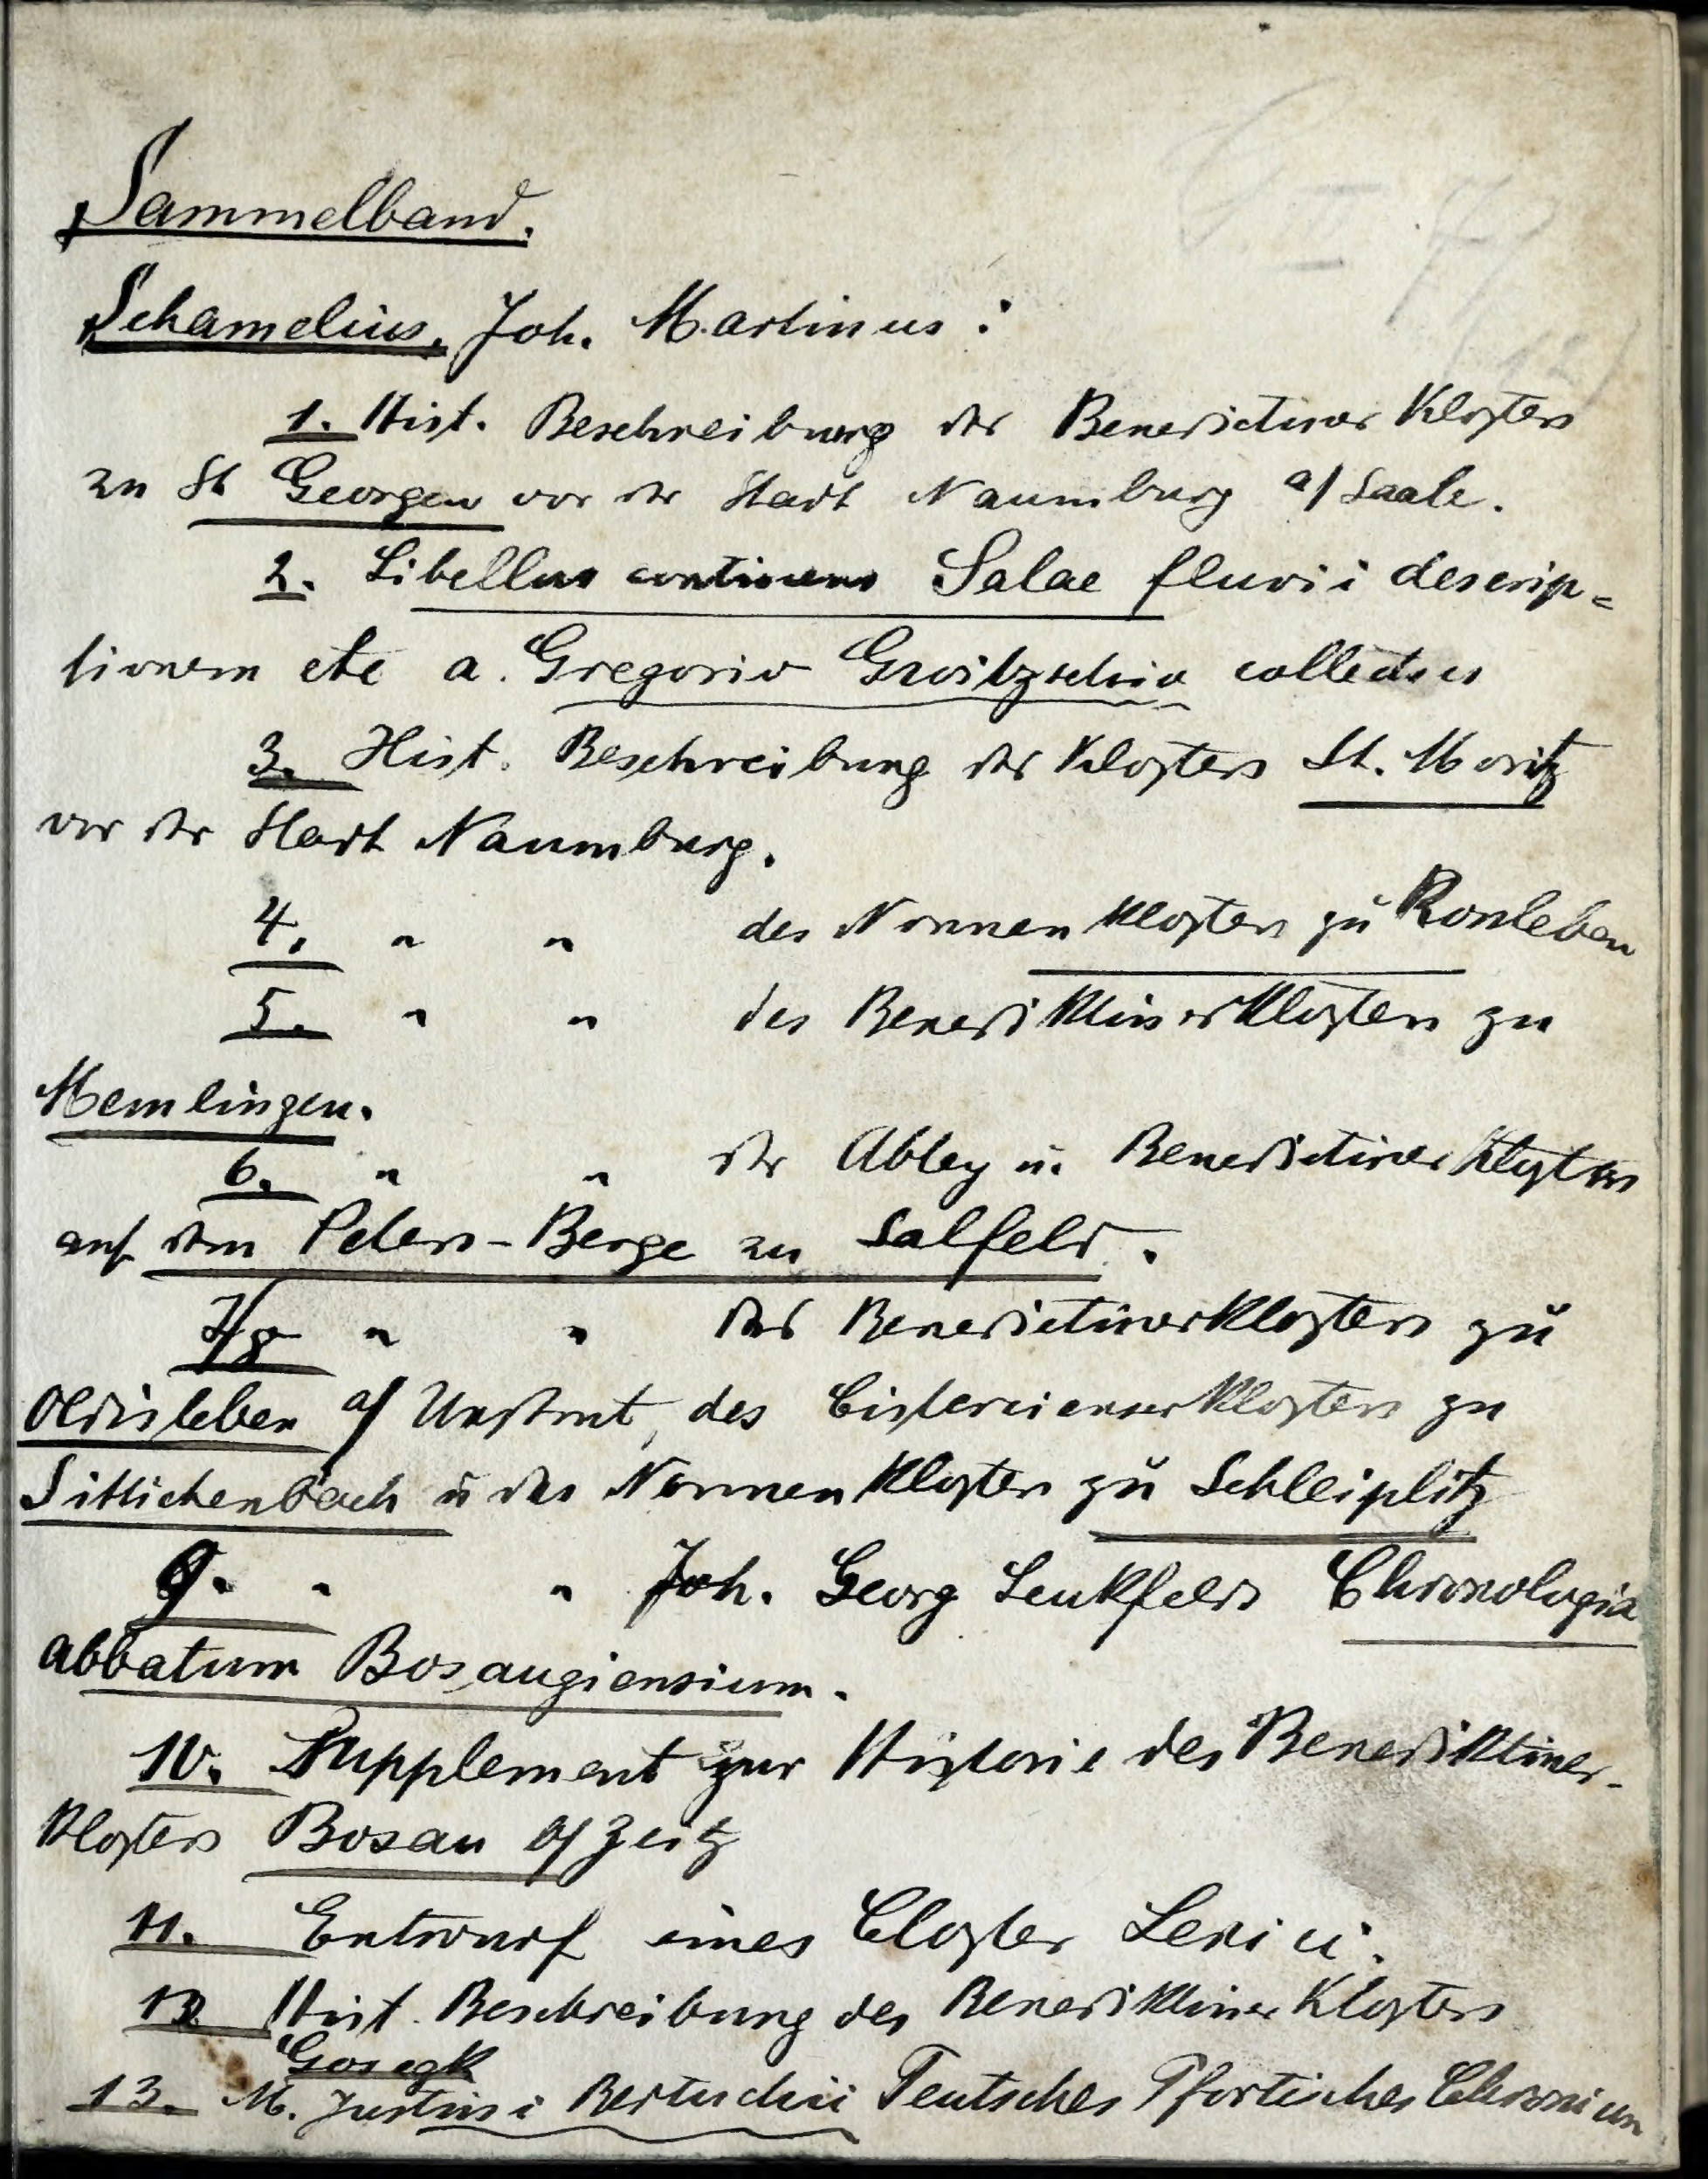 Sammelband.
Schamelius, Joh. Martinus:
1. Hist. Beschreibung des Benedictiner Klosters
zu St Georgen vor der Stadt Naumburg a/Saale.
2. Libellus continens Salae fluvii descrip=
tionem etc a. Gregorio Groitzschio collectus
3. Hist. Beschreibung des Klosters St. Moritz
vor der Stadt Naumburg.
4. " " des Nonnenklosters zu Ronleben
5. " " des Benediktinerklosters zu
Memlingen.
6. " " der Abtey u. Benedictiner Klosters
auf dem Peters-Berge zu Salfeld.
7/8 " " des Benedictinerklosters zu
Oldisleben a/ Unstrut, des Cistercienserklosters zu
Sittichenbach u des Nonnenklosters zu Schleiplitz
9. " " Joh. Georg Leukfelds Chronologia
abbatum Bosaugiensium.
10. Supplement zur Historie des Benediktiner-
klosters Bosau b/ Zeitz
11. Entwurf eines Closter Lexici.
12 Hist. Beschreibung des Benediktiner Klosters
Gosegk
13. M. Justini Bertuchii Teutsches Pfortisches Chronicon